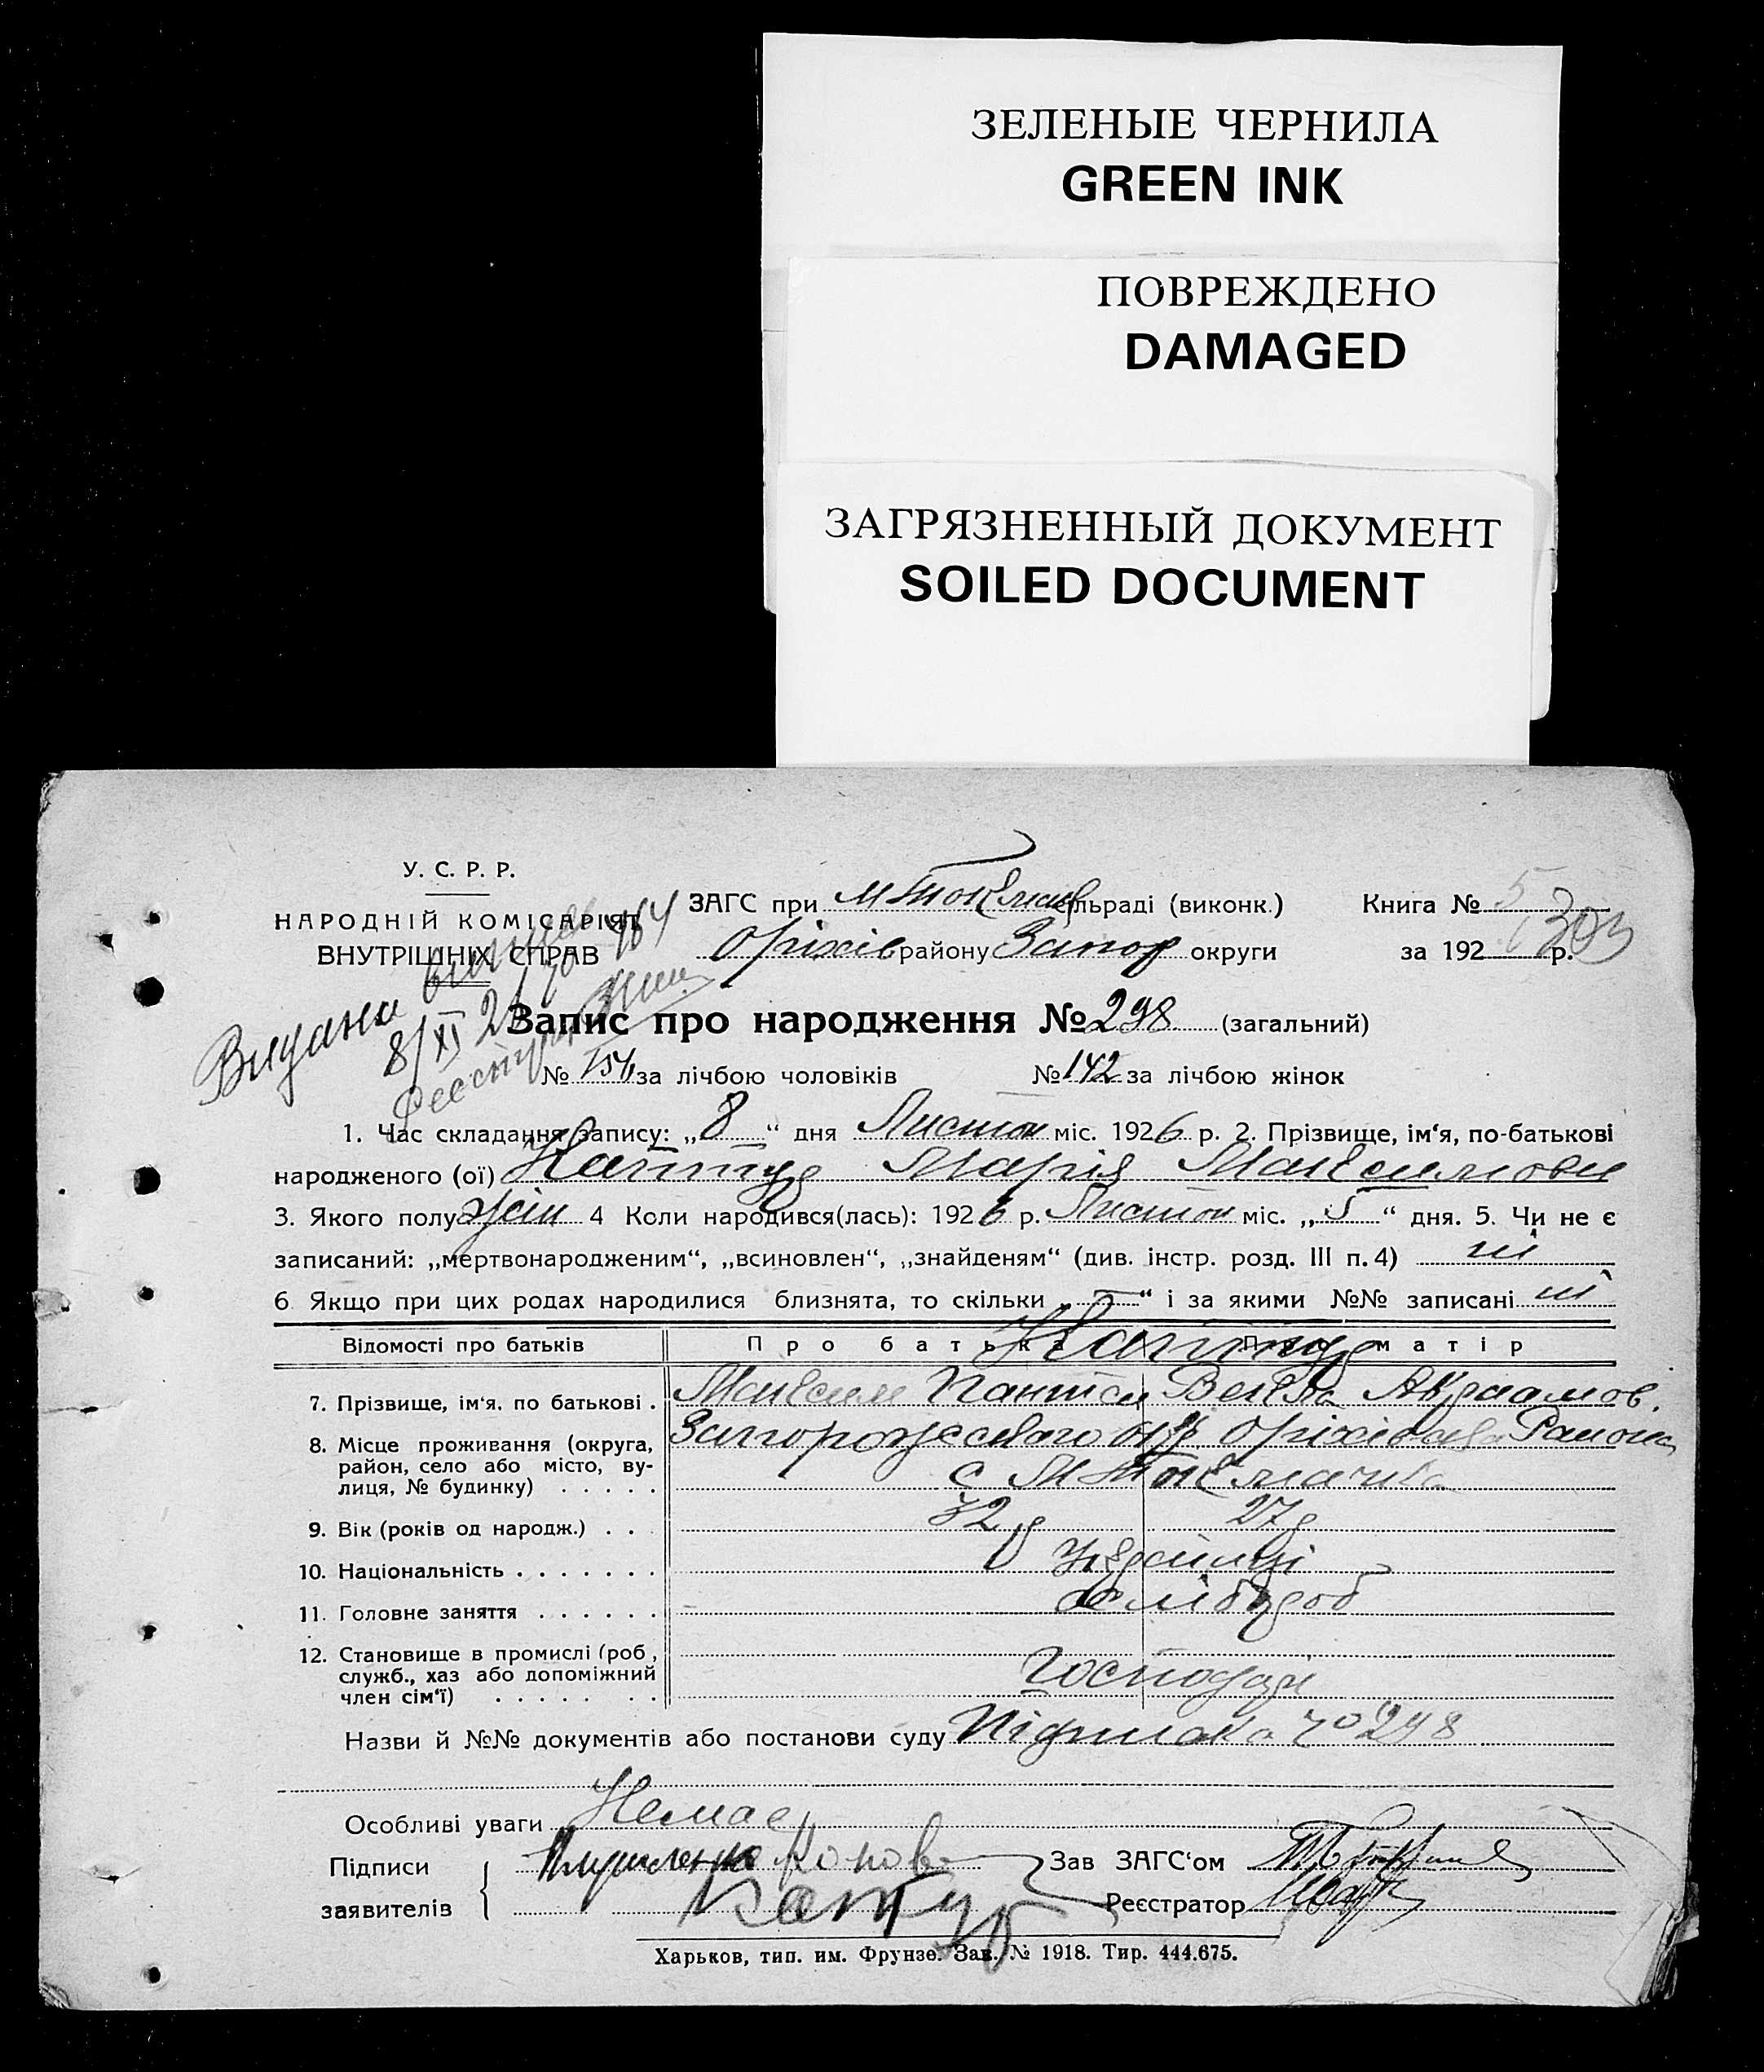 ЗЕЛЕНЫЕ ЧЕРНИЛА
GREEN INK
ПОВРЕЖДЕНО
DAMAGED
ЗАГРЯЗНЕННЫЙ ДОКУМЕНТ
SOILED DOCUMENT
У. С. Р. Р.
НАРОДНІЙ КОМІСАРІЯТ
ВНУТРІШНІХ СПРАВ
ЗАГС при сільраді (виконк.) Книга № 5
Оріхів району Запор округи за 192 р.
303
Видана
8/XI 26
Запис про народження № 298 (загальний)
№ 154 за лічбою чоловіків № 142 за лічбою жінок
1. Час складання запису: „8“ дня Листоп міс. 1926 р. 2. Прізвище, ім‘я, по-батькові
народженого (ої) Марія Максимовн
3. Якого полу жін 4 Коли народився(лась): 1926 р. Листоп міс. „5“ дня. 5. Чи не є
записаний: „мертвонародженим“, „всиновлен“, „знайденям“ (див. інстр. розд. III п. 4) ні
6 Якщо при цих родах народилися близнята, то скільки „—“ і за якими №№ записані ні
Відомості про батьків Про батька Про матір
7. Прізвище, ім‘я, по батькові . Максим Пантел Векла Авраамов.
8. Місце проживання (округа, Запорожського окр Оріхівсько Району
район, село або місто, ву- с М Токмачка
лиця, № будинку) . . . . .
9. Вік (років од народж.) . . 32 р 27 р
10. Національність . . . . . . . Українці
11. Головне заняття . . . . . . хлібороб
12. Становище в промислі (роб,
служб., хаз або допоміжний Господарі
член сім‘ї) . . . . . . .
Назви й №№ документів або постанови суду № 298
Особливі уваги Немає
Підписи Зав ЗАГС‘ом
заявителів Реєстратор
Харьков, тип. им. Фрунзе. Зак. № 1918. Тир. 444.675.